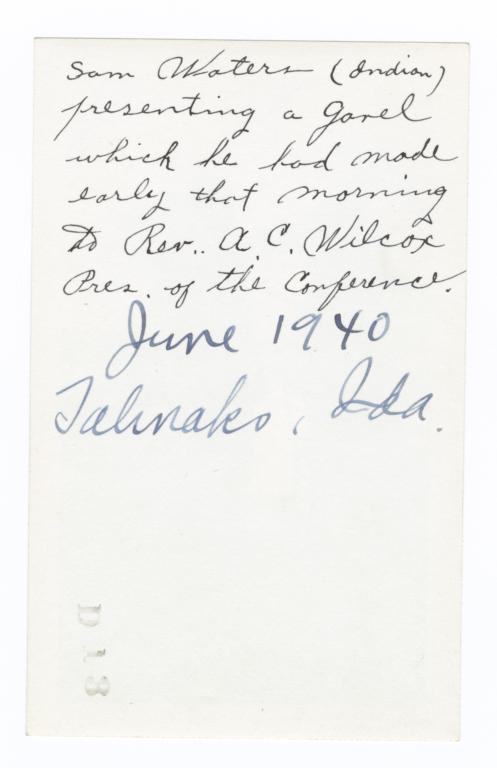 Sam Waters (Indian)
presenting a gavel
which he had made
early that morning
to Rev.. A. C. Wilcox
Pres. of the Conference.
June 1940
Talmaks, Ida.
D13